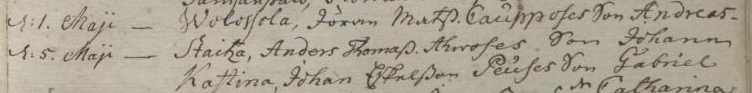 d: 1. Maji — Wolossola, Jöran Matß. Caupposes Son Andreas-
d: 5. Maji — Staika, Anders Thomaß. Ahroses Son Johann
Kastina, Johan Eskelßon Peuses Son Gabriel
Catharina